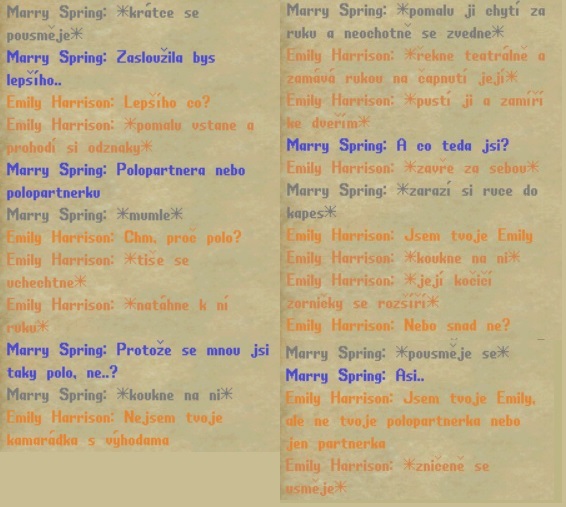 Marry Spring: *krátce se
pousměje*
Marry Spring: Zasloužila bys
lepšího..
Emily Harrison: Lepšího co?
Emily Harrison: *pomalu vstane a
prohodí si odznaky*
Marry Spring: Polopartnera nebo
polopartnerku
Marry Spring: *mumle*
Emily Harrison: Chm, proč polo?
Emily Harrison: *tiše se
uchechtne*
Emily Harrison: *natáhne k ní
ruku*
Marry Spring: Protože se mnou jsi
taky polo, ne..?
Marry Spring: *koukne na ni*
Emily Harrison: Nejsem tvoje
kamarádka s výhodama
Marry Spring: *pomalu ji chytí za
ruku a neochotně se zvedne*
Emily Harrison: *řekne teatrálně a
zamává rukou na čapnutí její*
Emily Harrison: *pustí ji a zamíří
ke dveřím*
Marry Spring: A co teda jsi?
Emily Harrison: *zavře za sebou*
Marry Spring: *zarazí si ruce do
kapes*
Emily Harrison: Jsem tvoje Emily
Emily Harrison: *koukne na ni*
Emily Harrison: *její kočičí
zorničky se rozšíří*
Emily Harrison: Nebo snad ne?
Marry Spring: *pousměje se*
Marry Spring: Asi..
Emily Harrison: Jsem tvoje Emily,
ale ne tvoje polopartnerka nebo
jen partnerka
Emily Harrison: *zničeně se
usměje*